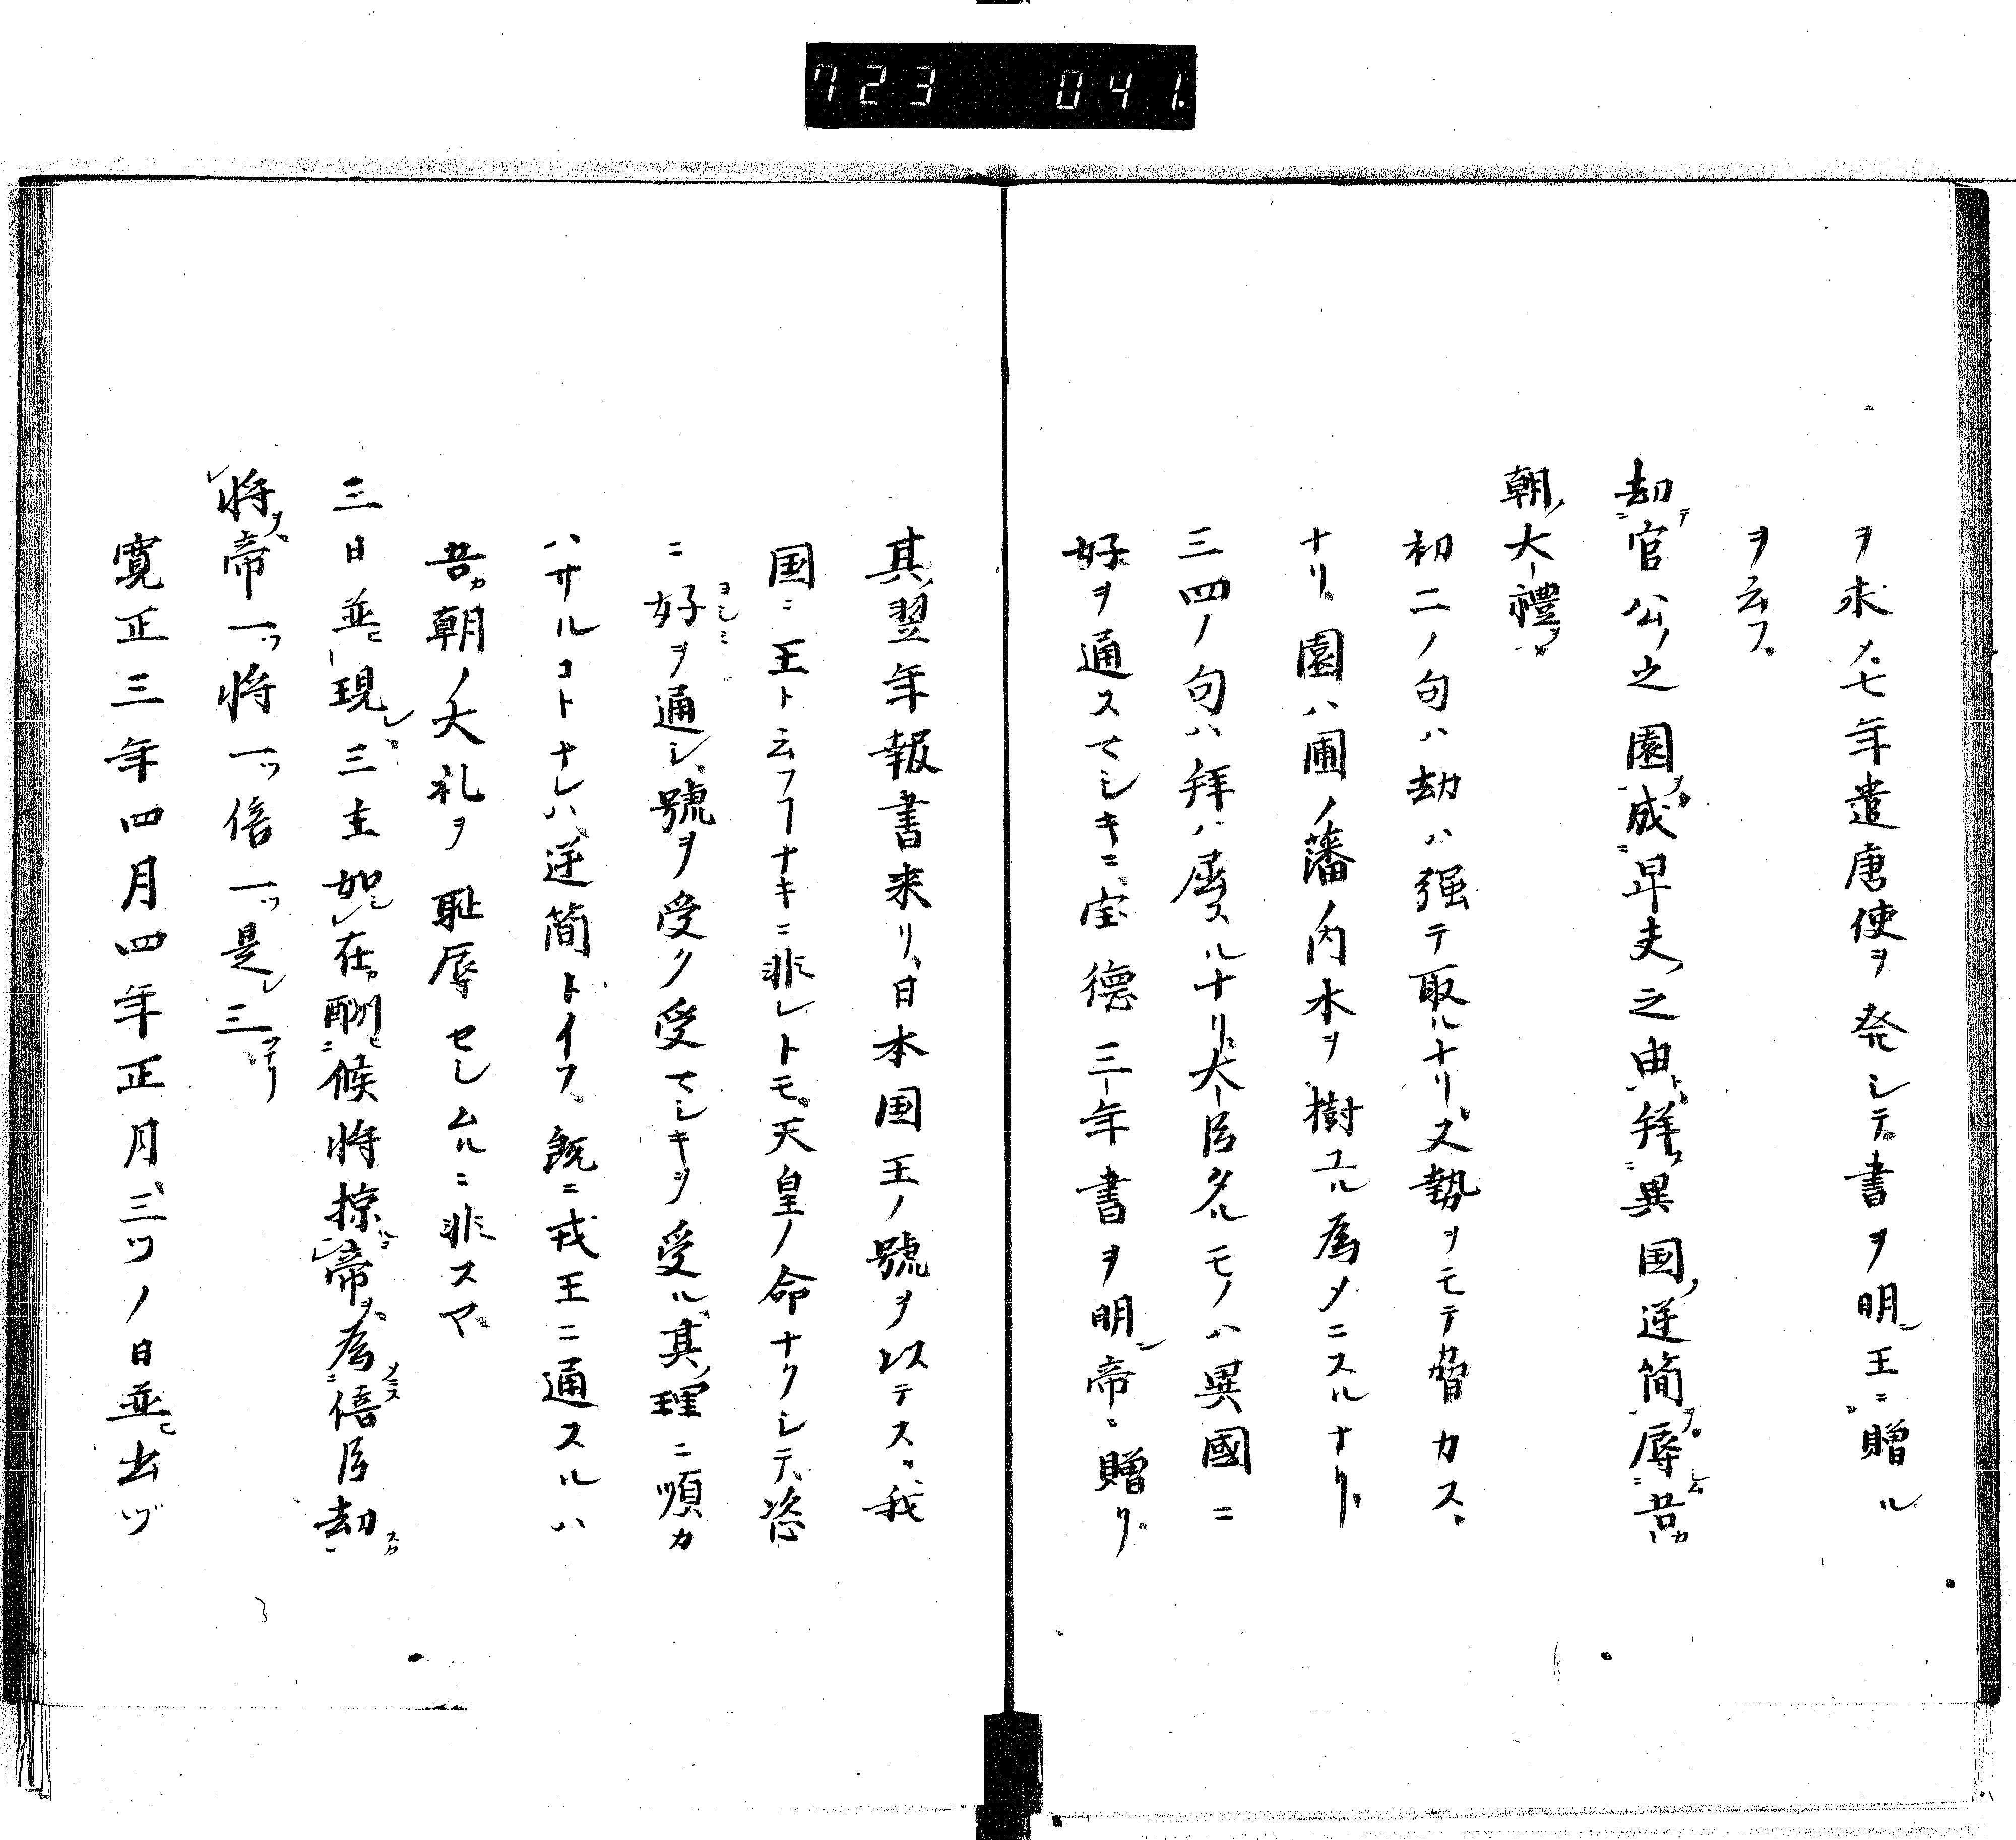 723 041.
ヲ求メ七年遣唐使ヲ発シテ書ヲ明王ニ贈ル
ヲ云フ
劫官公之園成早夫之由拜異国逆簡辱吾
朝大禮
初二ノ句ハ劫ハ强テ取ルナリ又勢ヲモテ脅カス
ナリ園ハ圃ノ藩ノ内木ヲ樹ユル為メニスルナリ
三四ノ句ハ拜ハ屈スルナリ大臣タルモノハ異國ニ
好ヲ通スマシキニ宝德三年書ヲ明帝ニ贈リ
其翌年報書来リ日本国王ノ號ヲ以テス我
国ニ王ト云フヿナキニ非レトモ天皇ノ命ナクシテ恣
ニ好ヲ通シ號ヲ受ク受マシキヲ受ル其理ニ順カ
ハサルコトナレハ逆簡トイフ既ニ戎王ニ通スルハ
吾朝ノ大礼ヲ耻辱セシムルニ非スヤ
三日並現三主如在酬候將掠帝為倍臣劫
將帝一ツ將一ツ倍一ツ是三ナリ
寛正三年四月四年正月三ツノ日並出ヅ